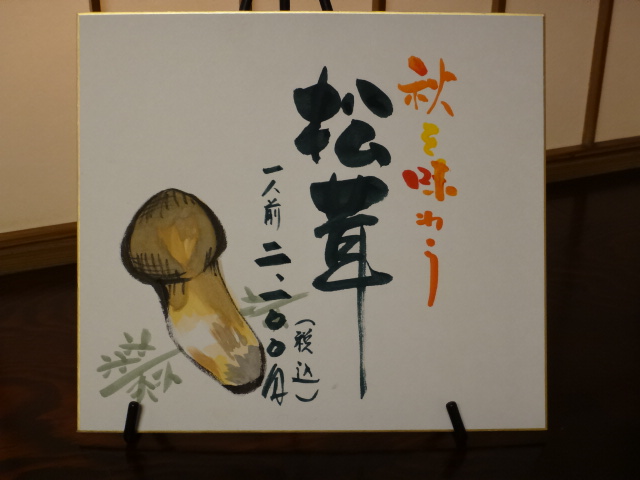 秋を味わう
松茸
一人前 二、一〇〇円
（税込）